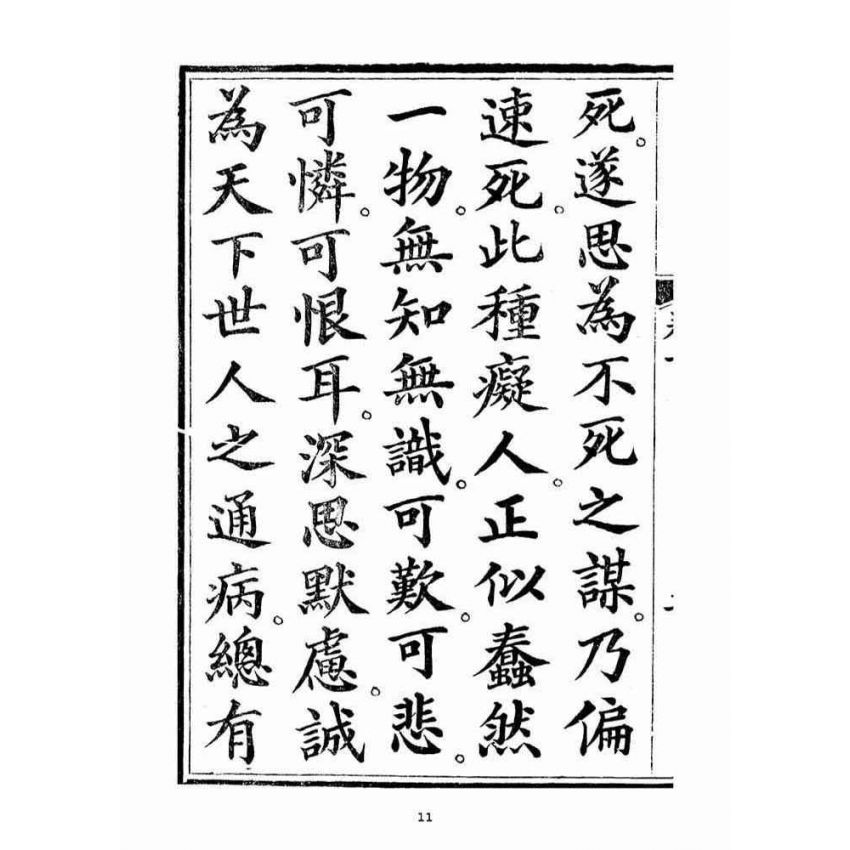 死。遂思為不死之謀。乃偏
速死。此種癡人。正似蠢然
一物。無知無識。可歎。可悲。
可憐。可恨耳。深思默慮。誠
為天下世人之通病。總有
11